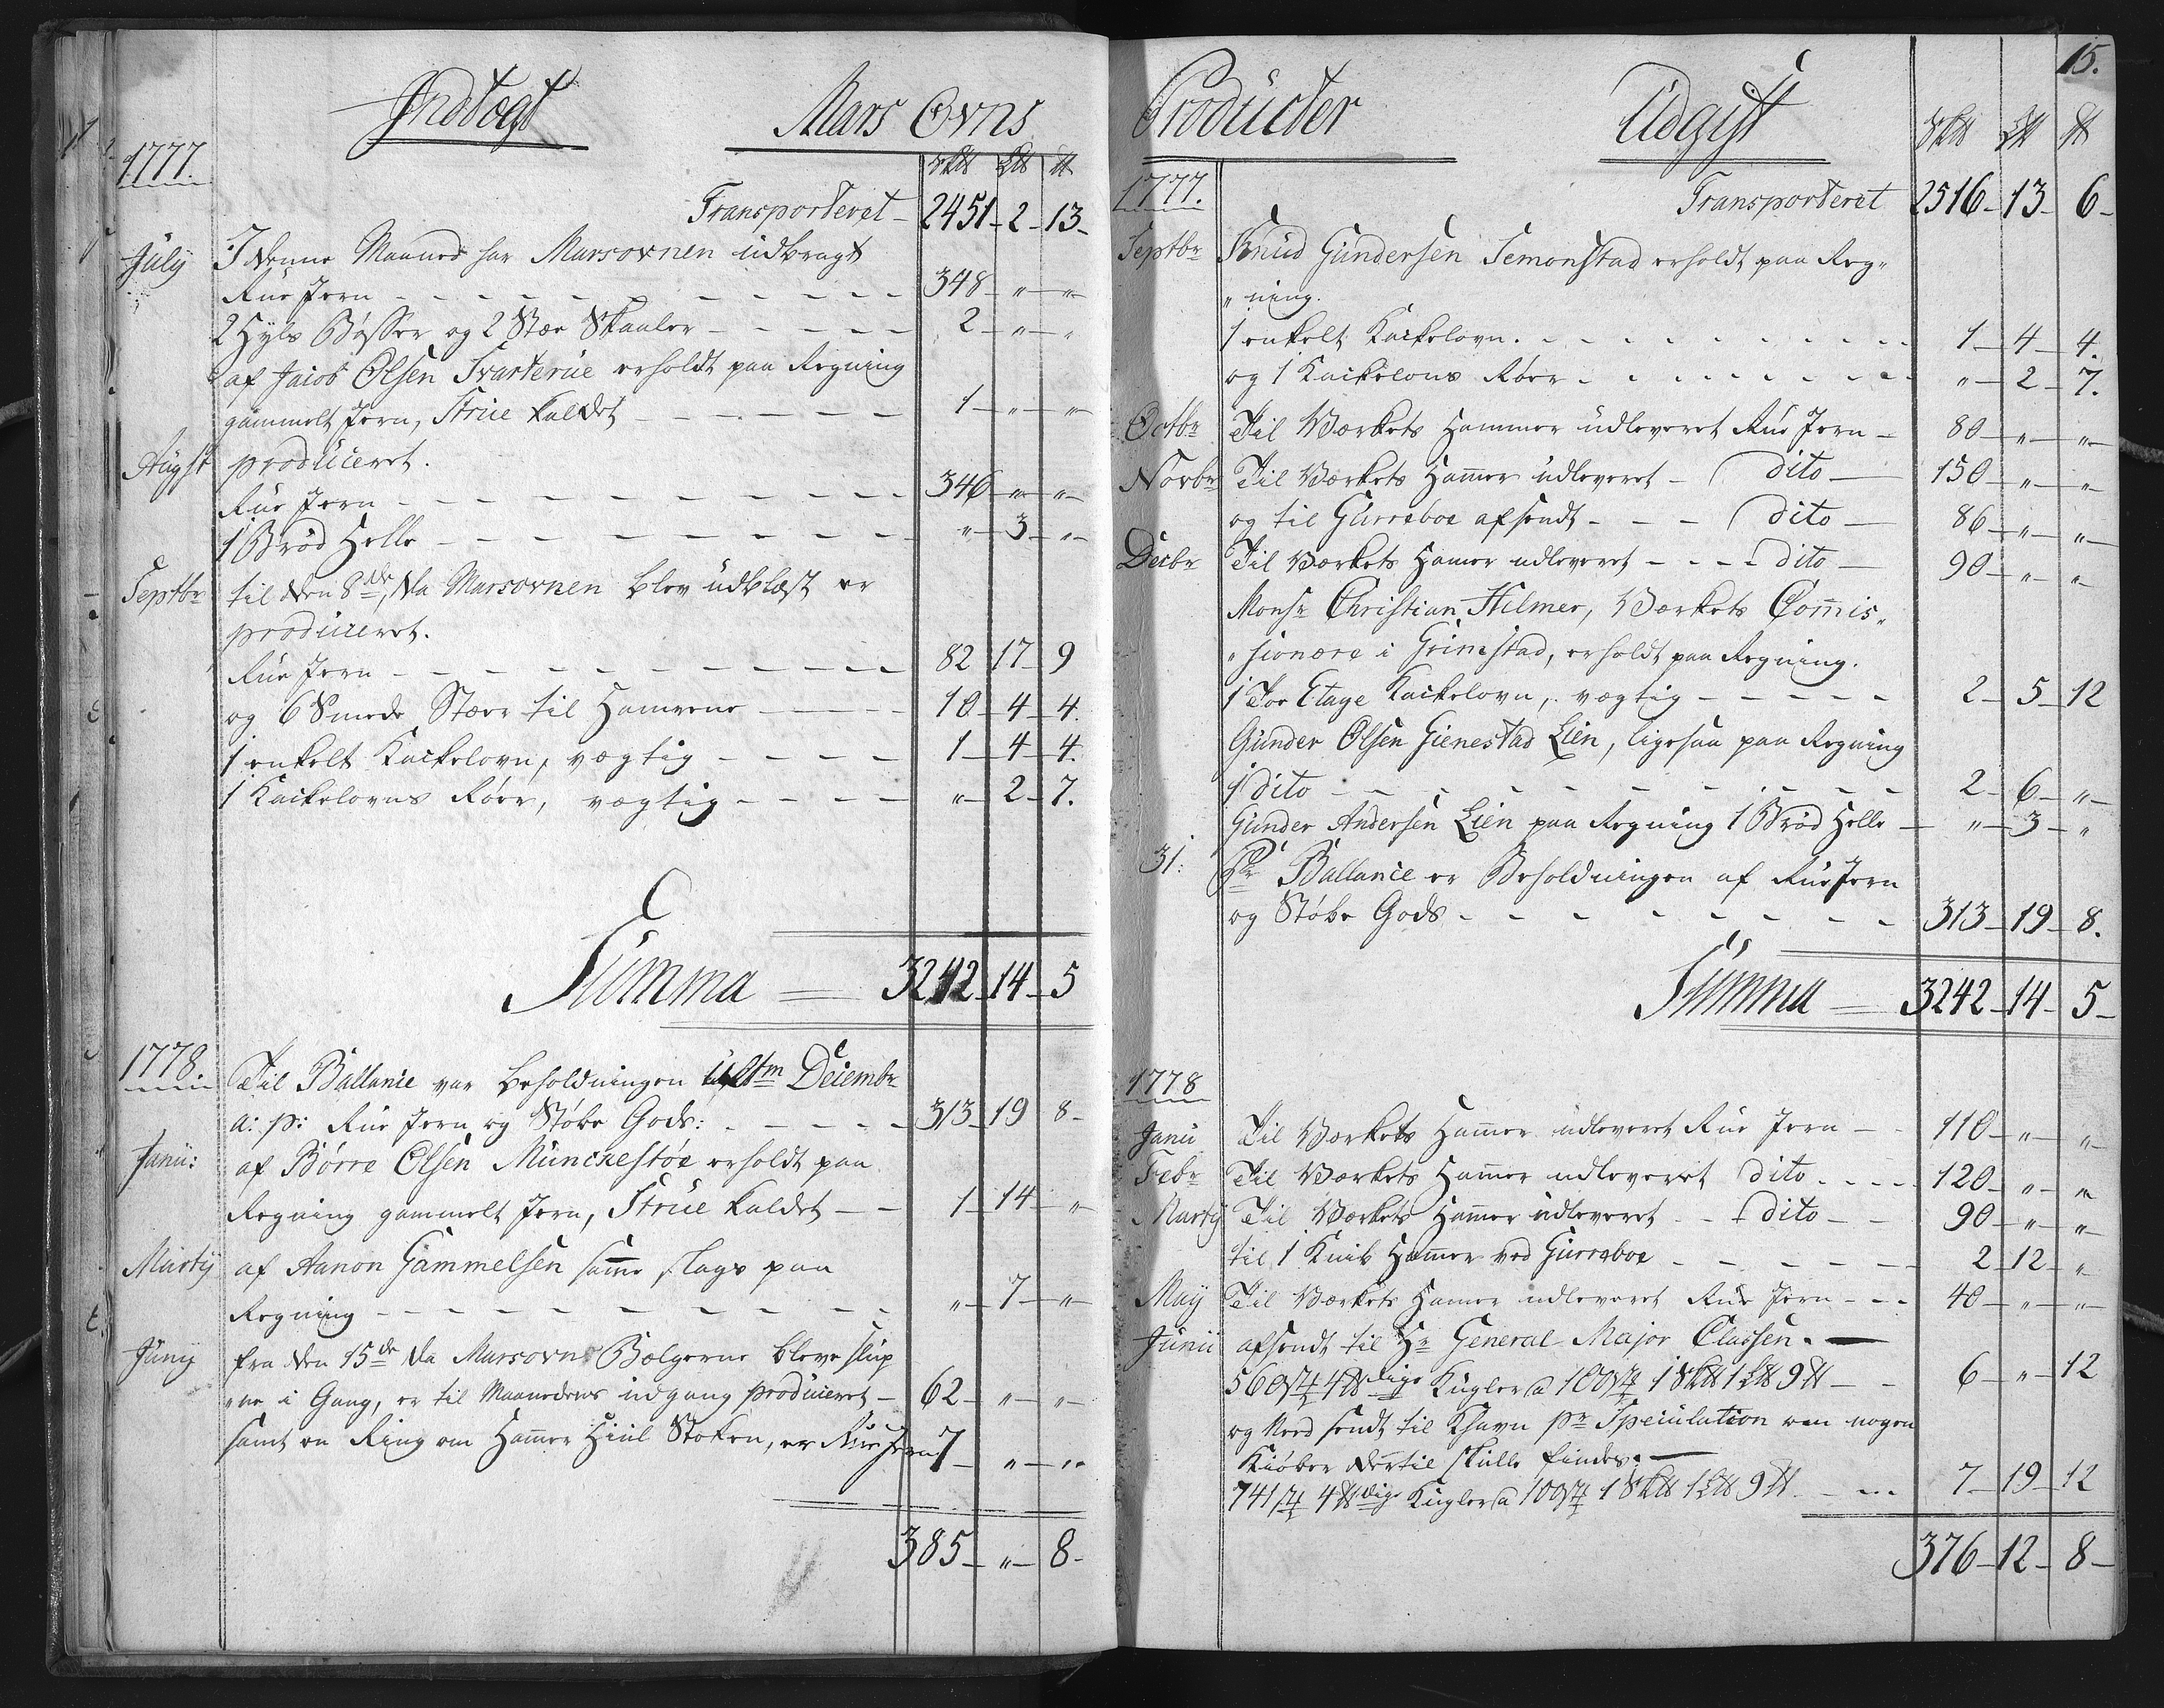 Indtægt
Mars Ovns
1777.
S℔ L℔ ℔
Transporteret - 2451 - 2 - 13 -
July I denne Maaned har Marsovnen udbragt
Rue Jern - 348 - " - "
2 Hyls Bøsser og 2 Stæe Skaaler - 2 - " - "
af Jacob Olsen Svarterue erholdt paa Regning
gammelt Jern, Strue kaldet - 1 - " - "
Augst producieret.
Rue Jern - 346 - " - "
1 Brød Helle - " - 3 - "
Septbr til den 8de, da Marsovnen blev udblæst er
producieret.
Rue Jern - 82 - 17 - 9
og 6 Smede Stæer til Hamerne - 10 - 4 - 4.
1 enkelt Kackelovn, vægtig - 1 - 4 - 4.
1 Kackelovns Röer, vægtig - " - 2 - 7.
Summa = 3242 - 14 - 5
1778. Til Ballance var beholdningen ult^m Decembr
a: p: Rue Jern og Støbe Gods: - 313 - 19 - 8 -
Janu: af Börre Olsen Munckestøe erholdt paa
Regning gammelt Jern, Strue kaldet - 1 - 14 - "
Marty af Aanon Gammelsen samme slags paa
Regning - " - 7 - "
Juny fra den 15de da Marsovns Bælgerne bleve slup
"ne i Gang, er til Maanedens udgang producieret - 62 - " - "
samt en Ring om Hamer Hiul Stoken, er Rue Jern 7 - " - "
385 - " - 8 -
15.
Producter
Udgift
S℔ L℔ ℔
1777.
Transporteret 2516 - 13 - 6 -
Septbr Knud Gundersen Temonstad erholdt paa Reg"
"ning.
1 enkelt Kackelovn. - 1 - 4 - 4.
og 1 Kackelovns Röer - " - 2 - 7.
Octbr Til Værkets Hammer udleveret Rue Jern - 80 - " - "
Novbr Til Værkets Hamer udleveret - dito - 150 - " - "
og til Gurreboe afsendt - dito - 86 - " - "
Decbr Til Værkets Hamer udleveret - dito - 90 - " - "
Monsr Christian Hilmer, Værkets Comis"
"sionære i Grimstad, erholdt paa Regning.
1 Toe Etage Kackelovn, vægtig - 2 - 5 - 12
Gunder Olsen Gienestad Lien, ligesaa paa Regning
1 dito - 2 - 6 - "
Gunder Andersen Lien paa Regning 1 Brød Helle - " - 3 - "
31: Pr Ballance er Beholdningen af Rue Jern
og Støbe Gods - 313 - 19 - 8.
Summa = 3242 - 14 - 5 -
1778
Janu Til Værkets Hamer udleveret Rue Jern - 110 - " - "
Febr Til Værkets Hamer udleveret dito - 120 - " - "
Marty Til Værkets Hamer udleveret - dito - 90 - " - "
til 1 Knib Hamer ved Gurreboe - 2 - 12 - "
May Til Værkets Hamer udleveret Rue Jern - 40 - " - "
Junii afsendt til Hr General Major Classen. -
560 st 4 ℔dige Kugler a 100 st 1 S℔ 1 L℔ 9 ℔ - 6 - " - 12
og Ned sendt til Khavn pr Speculation om nogen
Kiøber dertil skulle findes. -
741 st 4 ℔dige Kugler a 100 st 1 S℔ 1 L℔ 9 ℔ - 7 - 19 - 12
376 - 12 - 8 -